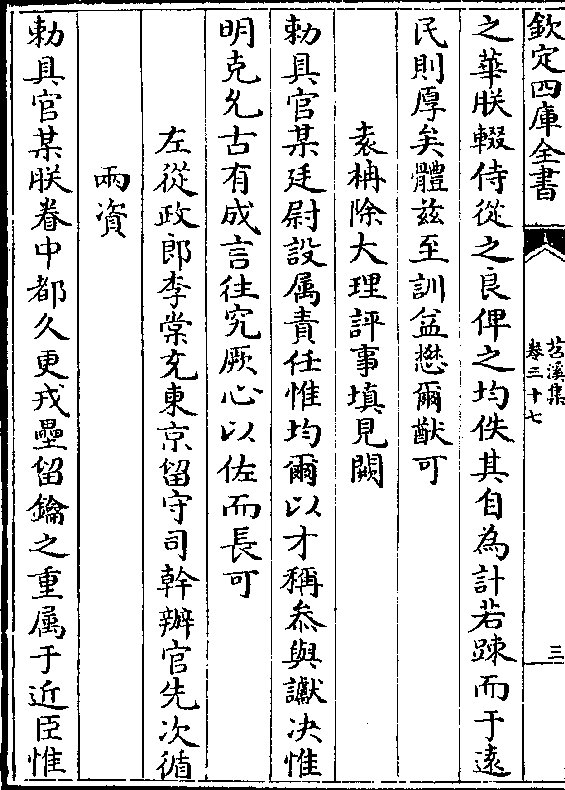 欽定四庫全書
苕溪集
卷三十七
三
之華朕輟侍從之良俾之均佚其自為計若踈而于遠
民則厚矣體兹至訓益懋爾猷可
袁柟除大理評事填見闕
勅具官某廷尉設属責任惟均爾以才稱叅與讞决惟
明克允古有成言往究厥心以佐而長可
左從政郎李棠充東京留守司幹辦官先次循
兩資
勅具官某朕眷中都久更戎壘留鑰之重属于近臣惟